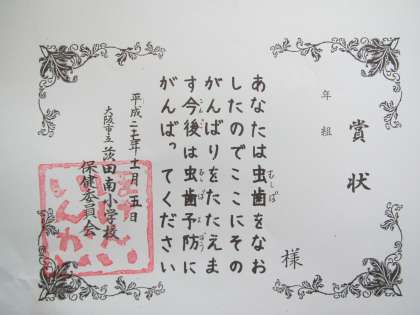 賞状
年 組
様
あなたは虫歯をなお
したのでここにその
がんばりをたたえま
す今後は虫歯予防に
がんばってください
平成二十七年十一月五日
大阪市立茨田南小学校
保健委員会